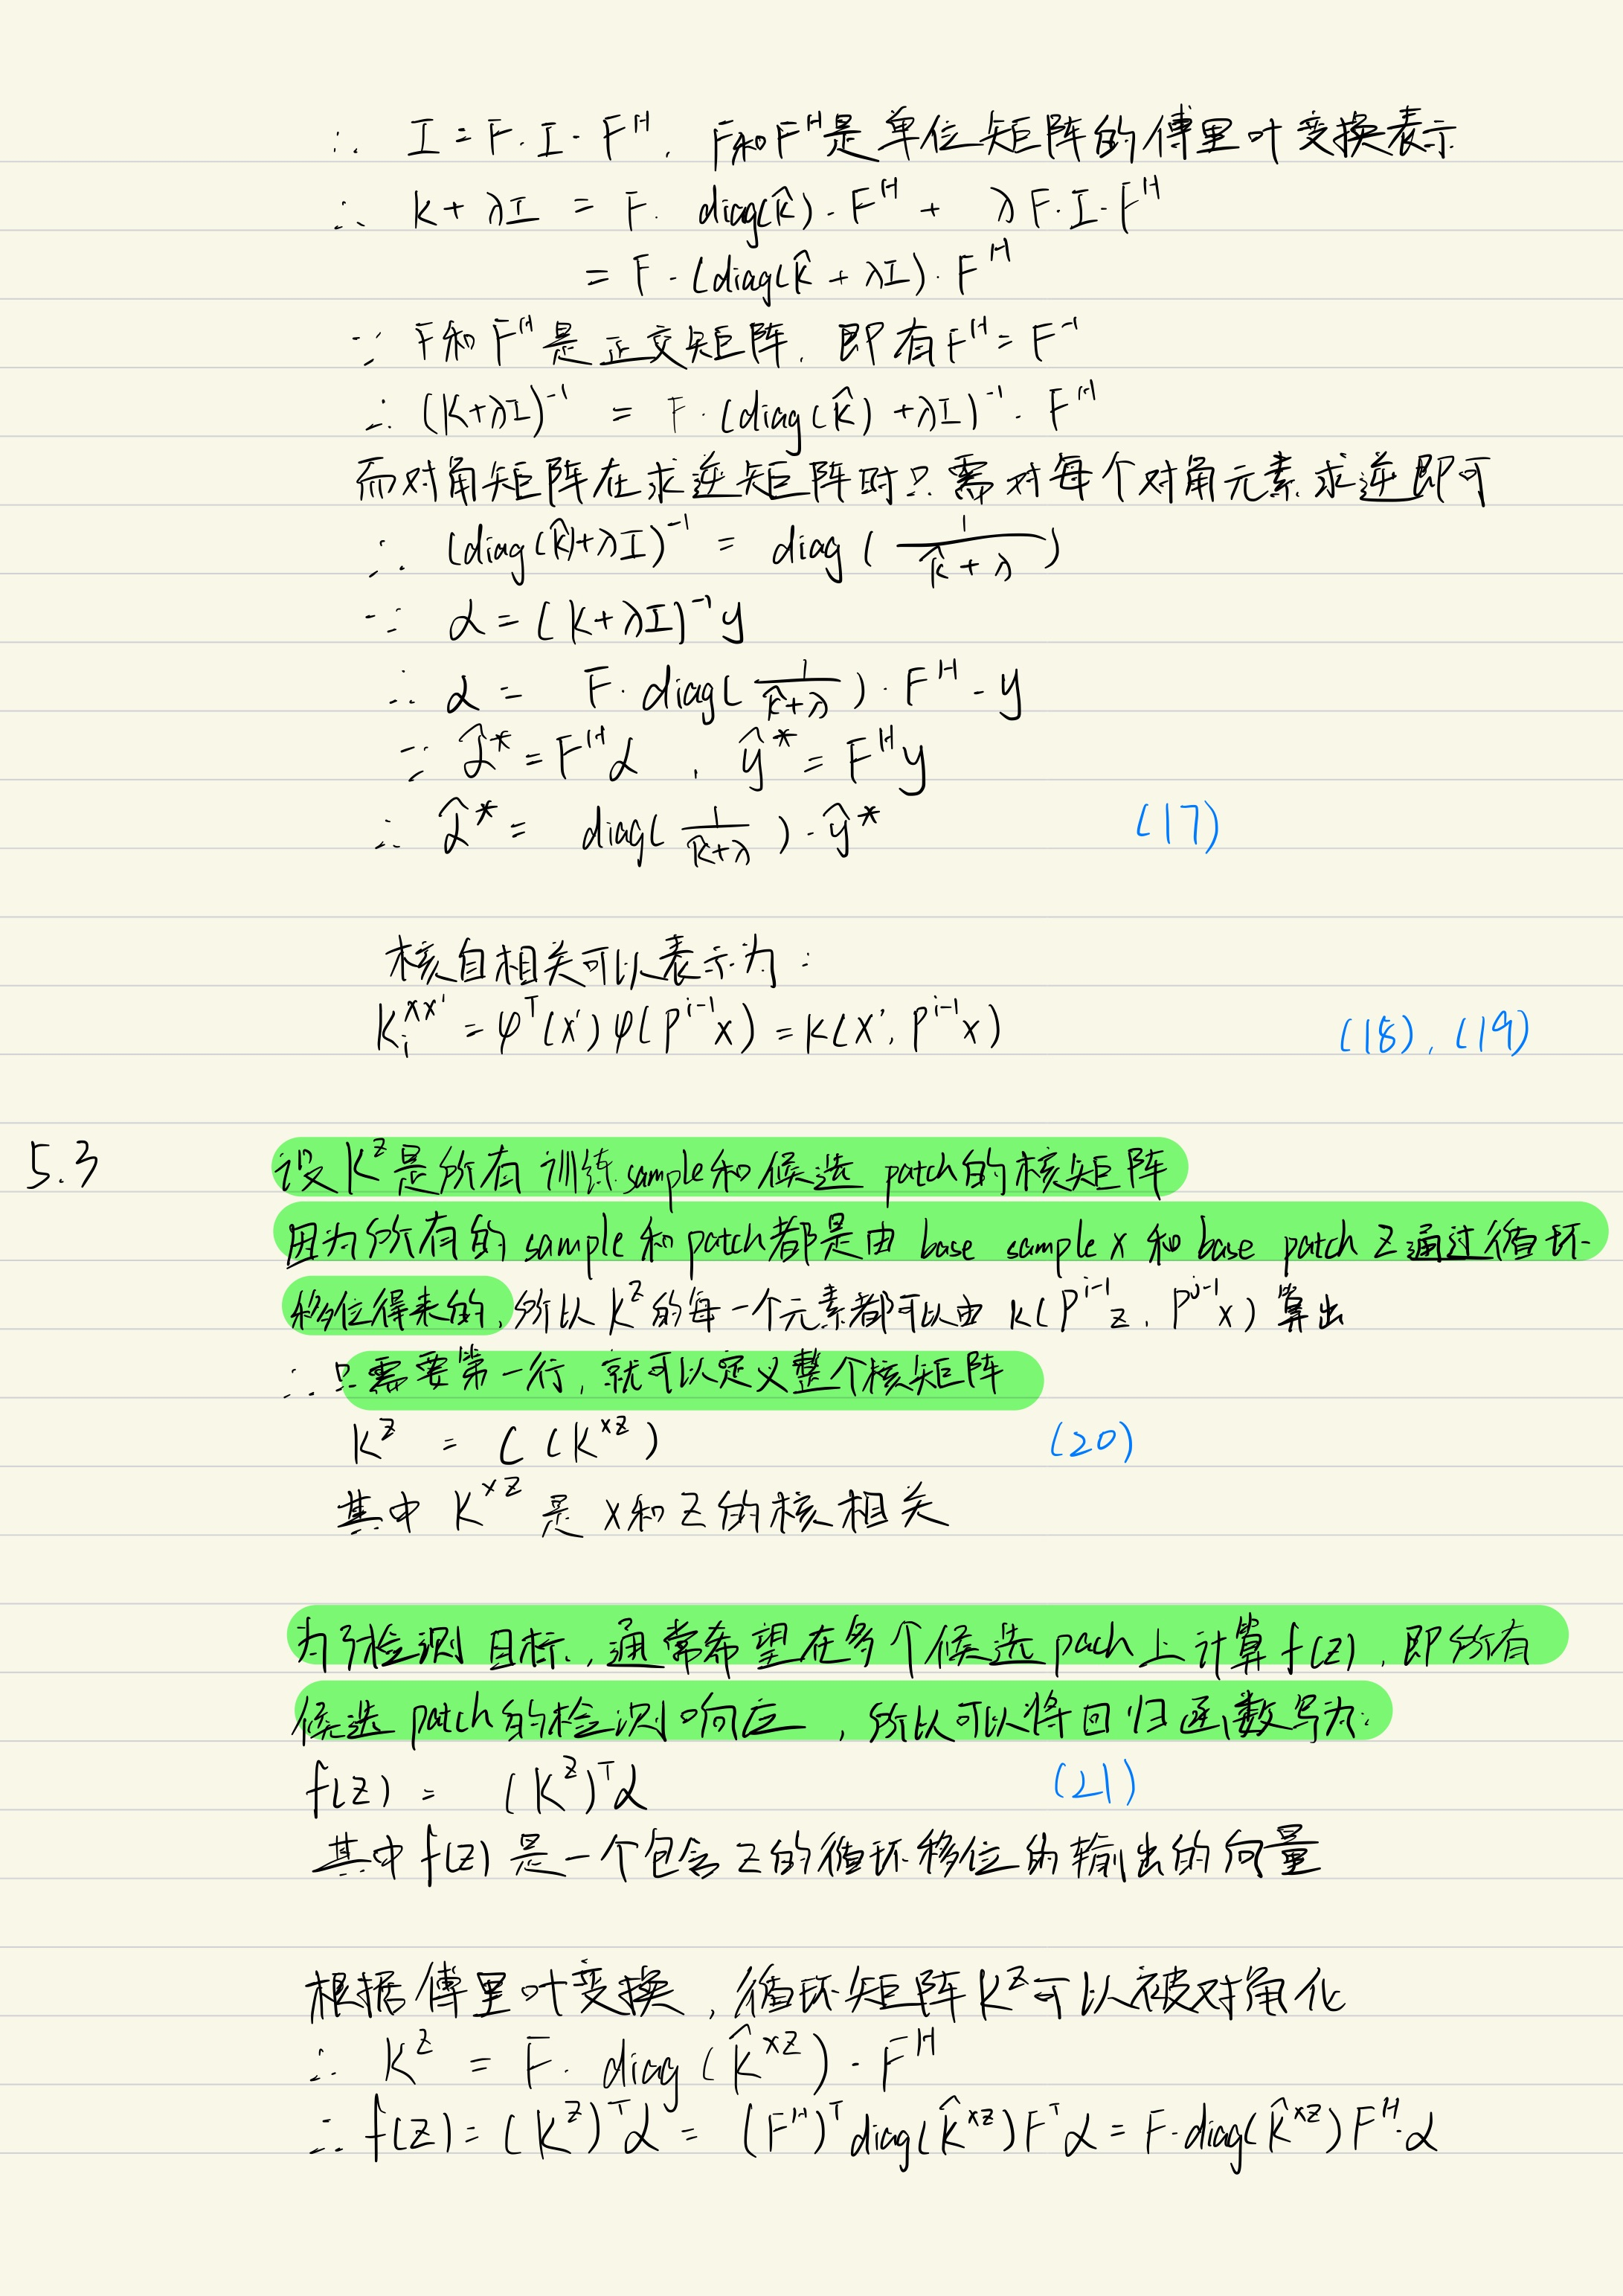 ∴ I = F·I·F^H, F和F^H是单位矩阵的傅里叶变换表示
∴ K+λI = F·diag(k̂)·F^H + λF·I·F^H
= F·(diag(k̂+λI)·F^H
∵ F和F^H是正交矩阵, 即有F^H=F^-1
∴ (K+λI)^-1 = F·(diag(k̂)+λI)^-1·F^H
而对角矩阵在求逆矩阵时只需对每个对角元素求逆即可
∴ (diag(k̂)+λI)^-1 = diag(1/(k̂+λ))
∵ α=(K+λI)^-1 y
∴ α = F·diag(1/(k̂+λ))·F^H·y
∵ α̂*=F^Hα , ŷ*=F^Hy
∴ α̂* = diag(1/(k̂+λ))·ŷ* (17)
核自相关可以表示为:
K_i^xx' = φ^T(x')φ(P^i-1 x) = K(x', P^i-1 x) (18), (19)
5.3 设K^z是所有训练sample和候选patch的核矩阵
因为所有的sample和patch都是由base sample x和base patch z通过循环
移位得来的,所以K^z的每一个元素都可以由K(P^i-1 z, P^j-1 x)算出
∴ 只需要第一行,就可以定义整个核矩阵
K^z = C(K^xz) (20)
其中K^xz是x和z的核相关
为了检测目标,通常希望在多个候选pach上计算f(z),即所有
候选patch的检测响应,所以可以将回归函数写为:
f(z) = (K^z)^Tα (21)
其中f(z)是一个包含z的循环移位的输出的向量
根据傅里叶变换,循环矩阵K^z可以被对角化
∴ K^z = F·diag(k̂^xz)·F^H
∴ f(z)=(K^z)^Tα = (F^H)^T diag(k̂^xz)F^Tα = F·diag(k̂^xz)F^H·α